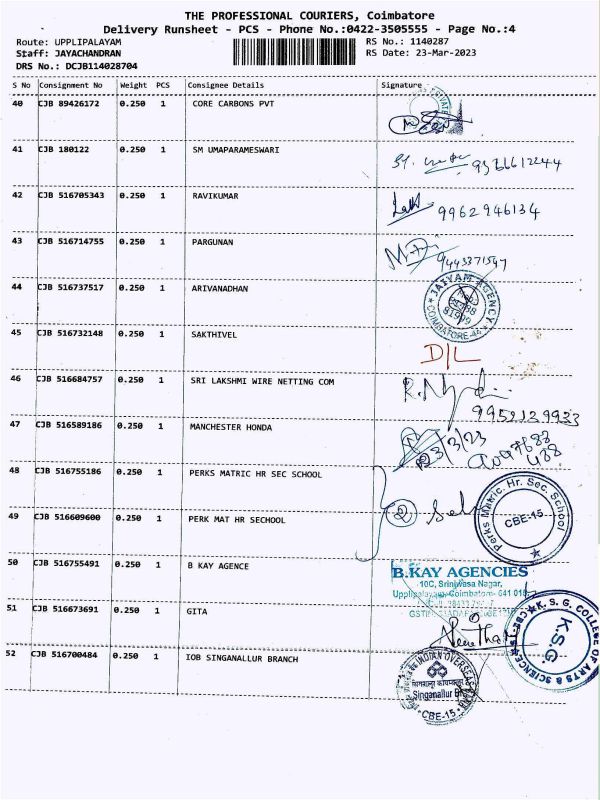 THE PROFESSIONAL COURIERS, Coimbatore
Delivery Runsheet - PCS - Phone No.:0422-3505555 - Page No.:4
Route: UPPLIPALAYAM RS No.: 1140287
Staff: JAYACHANDRAN RS Date: 23-Mar-2023
DRS No.: DCJB114028704
S No Consignment No Weight PCS Consignee Details Signature
40 CJB 89426172 0.250 1 CORE CARBONS PVT
41 CJB 180122 0.250 1 SM UMAPARAMESWARI
42 CJB 516705343 0.250 1 RAVIKUMAR 9962946134
43 CJB 516714755 0.250 1 PARGUNAN 9443371547
44 CJB 516737517 0.250 1 ARIVANADHAN
JAIYAM AGENCY
COIMBATORE-
45 CJB 516732148 0.250 1 SAKTHIVEL D/L
46 CJB 516684757 0.250 1 SRI LAKSHMI WIRE NETTING COM
9952129933
47 CJB 516589186 0.250 1 MANCHESTER HONDA 23/3/23
48 CJB 516755186 0.250 1 PERKS MATRIC HR SEC SCHOOL
49 CJB 516609600 0.250 1 PERK MAT HR SECHOOL 2
Perks Matric. Hr. Sec. School
CBE-15.
50 CJB 516755491 0.250 1 B KAY AGENCE
B.KAY AGENCIES
10C, Srinivasa Nagar,
Upplipalayam, Coimbatore- 641 015
51 CJB 516673691 0.250 1 GITA
K. S. G. COLLEGE OF ARTS & SCIENCE
K.S.G.
52 CJB 516700484 0.250 1 IOB SINGANALLUR BRANCH
INDIAN OVERSEAS
Singanallur Br
CBE-15